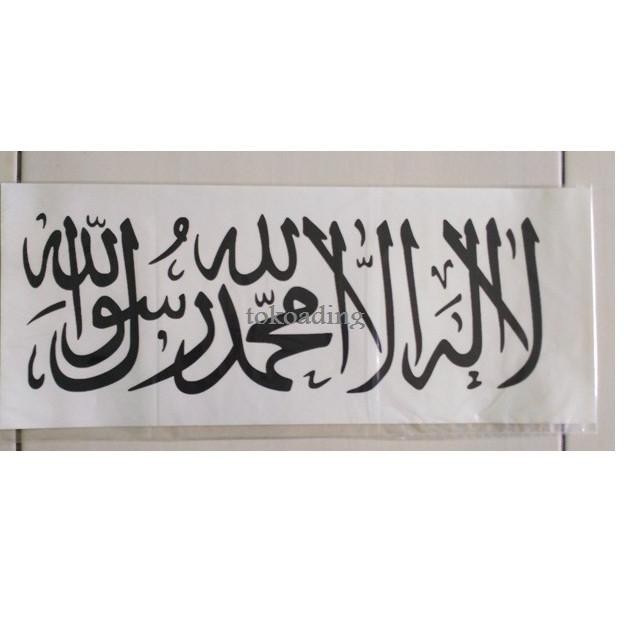 لا إله إلا الله محمد رسول الله
tokoading